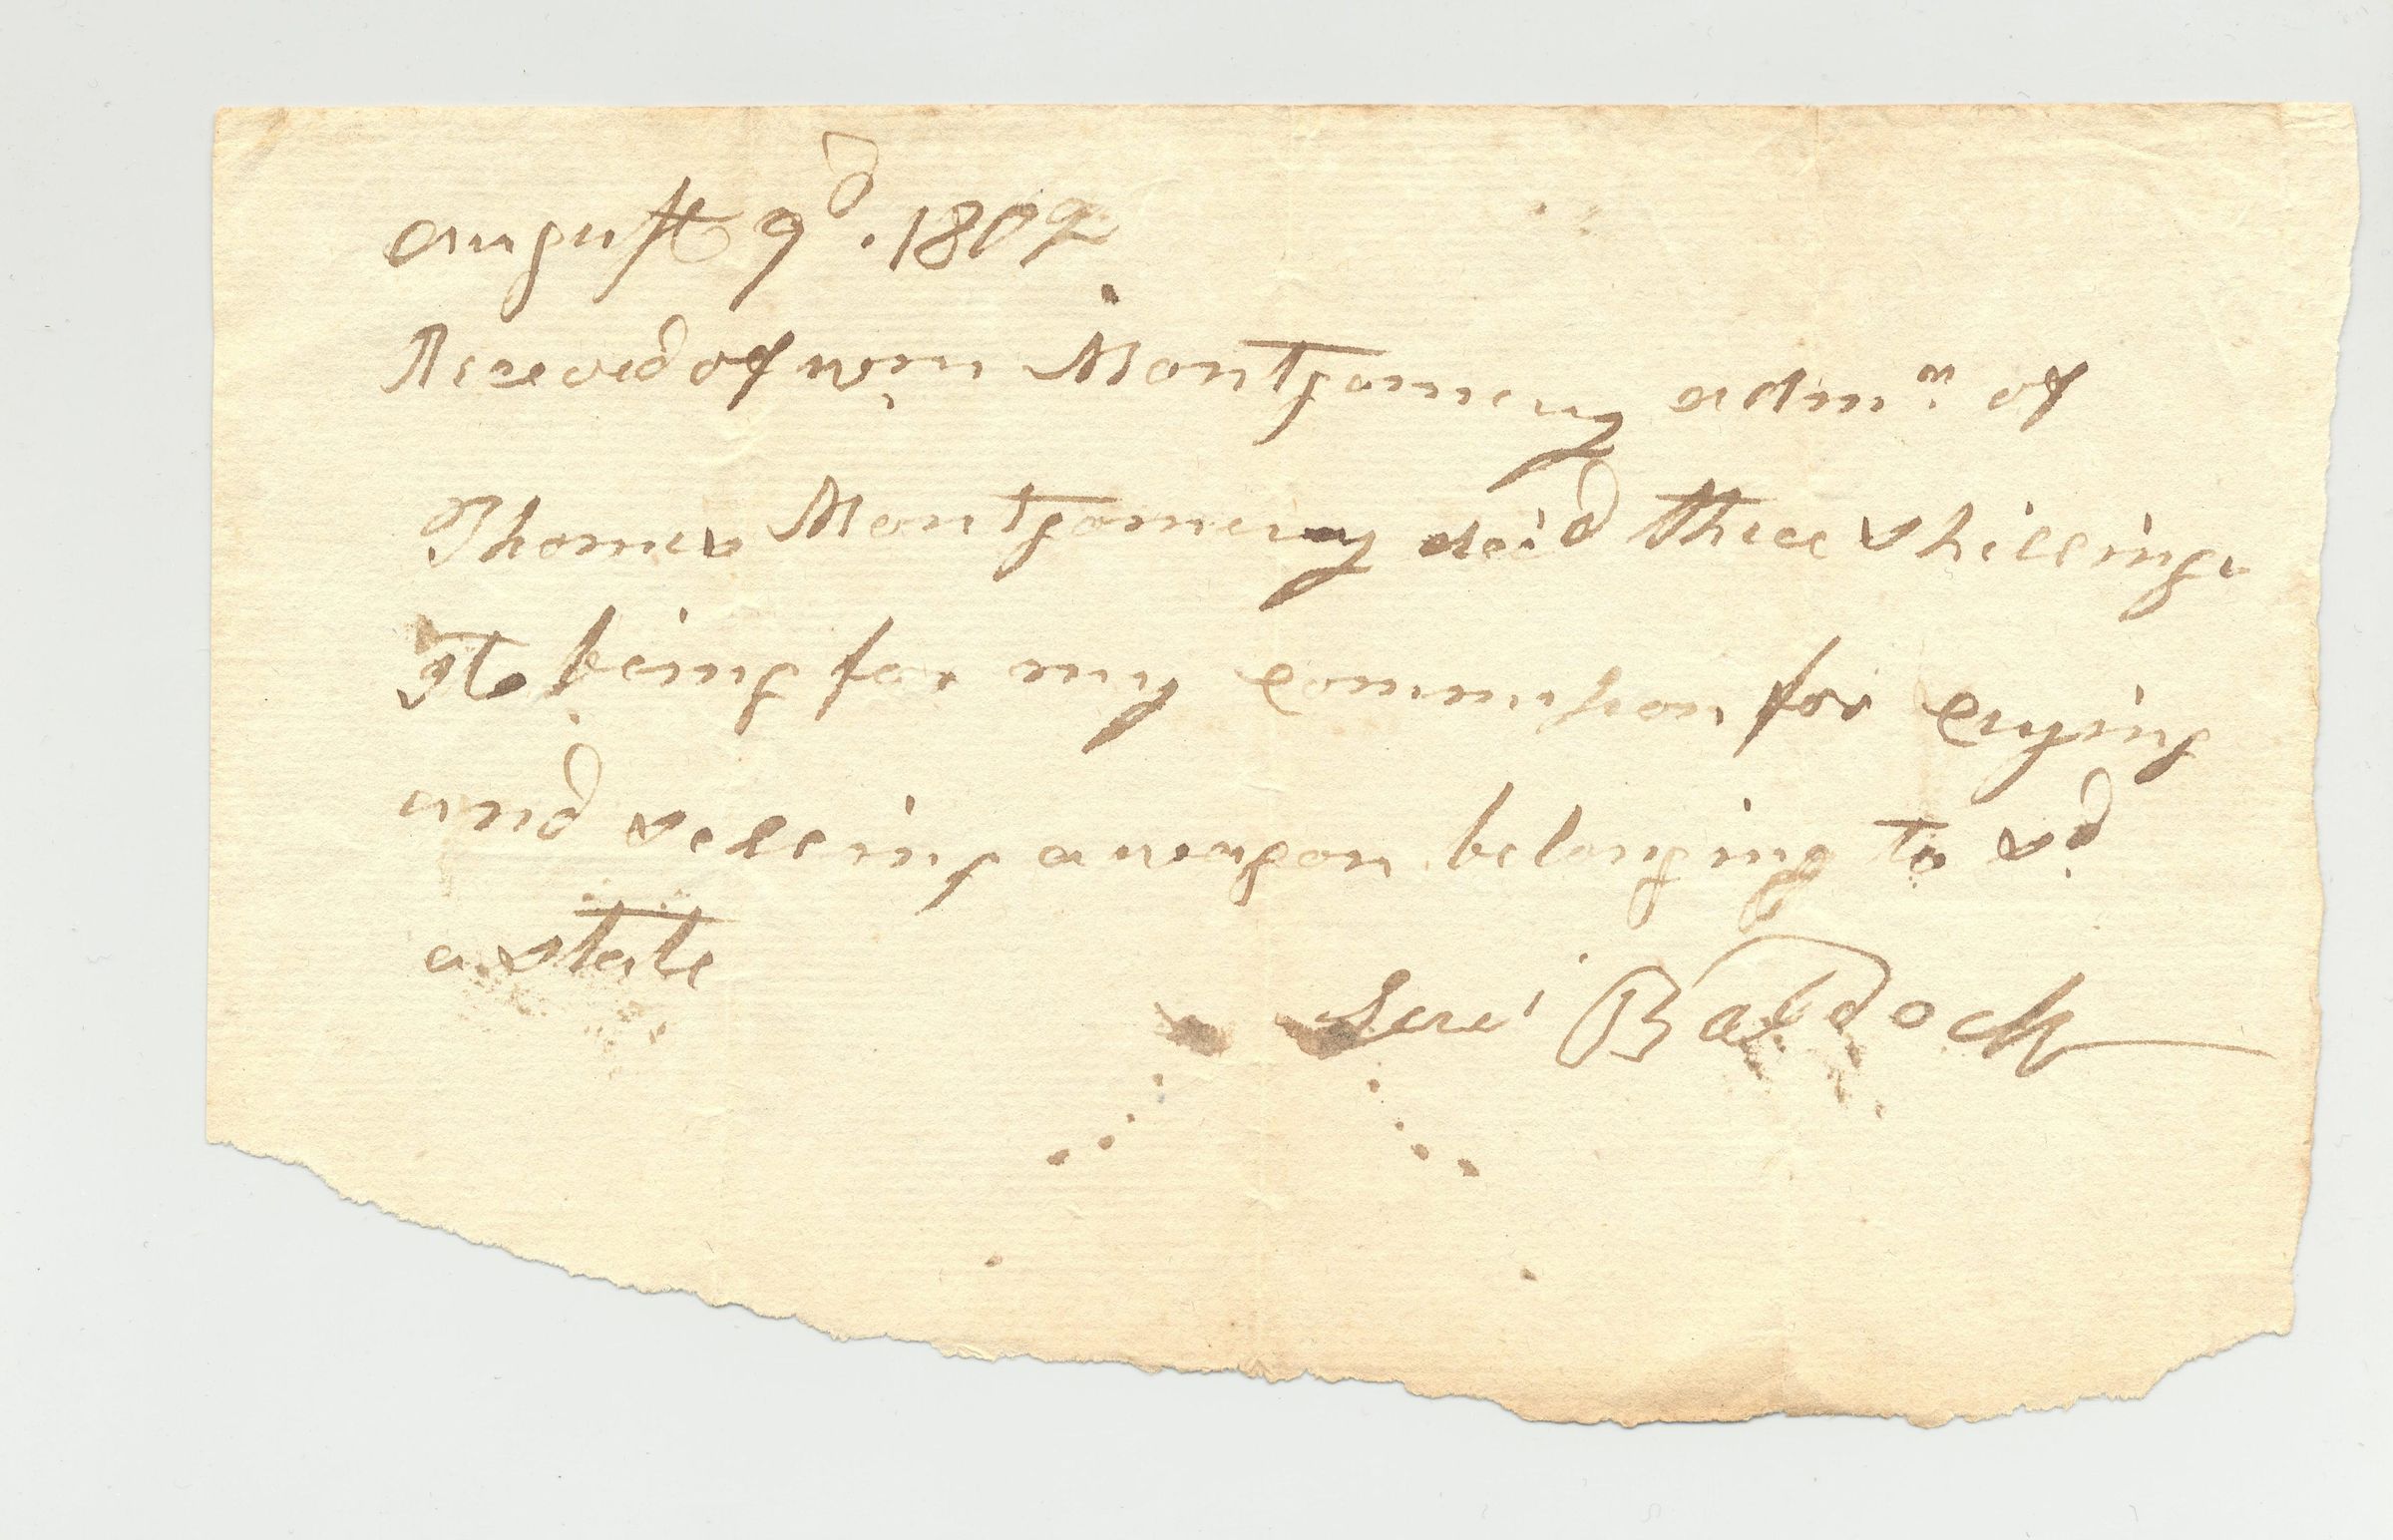 august 9d. 1802
Receved of wm Montgomery admr. of
Thomas Montgomery dec'd three shillings
It being for my commission for crying
and selling a wagon belonging to sd.
astate
Levi Baldock